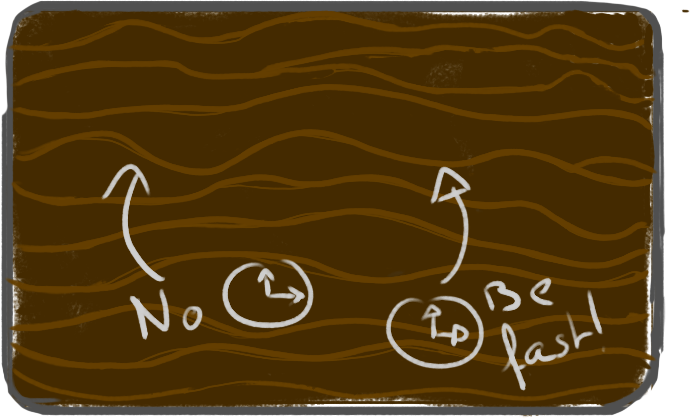 No
Be
fast!